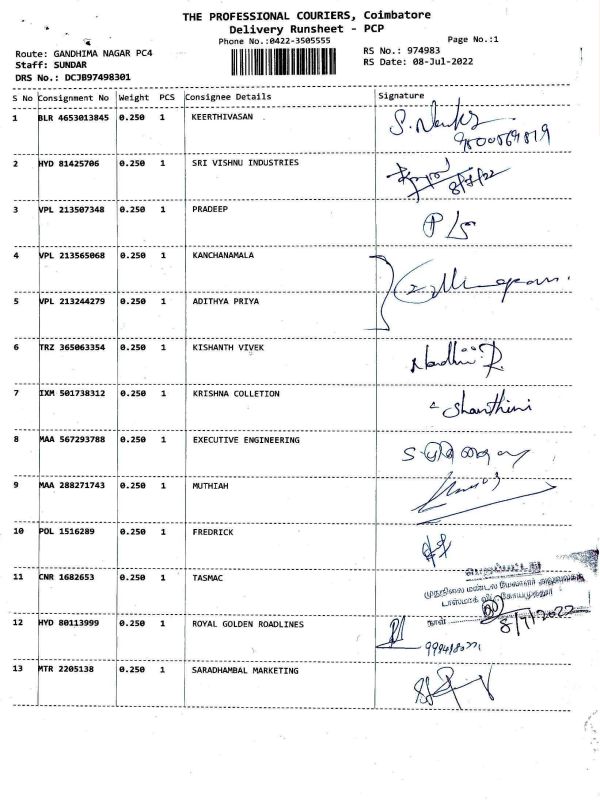 THE PROFESSIONAL COURIERS, Coimbatore
Delivery Runsheet - PCP
Phone No.:0422-3505555
Page No.:1
Route: GANDHIMA NAGAR PC4
RS No.: 974983
Staff: SUNDAR
RS Date: 08-Jul-2022
DRS No.: DCJB97498301
S No Consignment No Weight PCS Consignee Details Signature
1 BLR 4653013845 0.250 1 KEERTHIVASAN
2 HYD 81425706 0.250 1 SRI VISHNU INDUSTRIES
8/7/22
3 VPL 213507348 0.250 1 PRADEEP
4 VPL 213565068 0.250 1 KANCHANAMALA
5 VPL 213244279 0.250 1 ADITHYA PRIYA
6 TRZ 365063354 0.250 1 KISHANTH VIVEK
Nandhii R
7 IXM 501738312 0.250 1 KRISHNA COLLETION
Shanthini
8 MAA 567293788 0.250 1 EXECUTIVE ENGINEERING
9 MAA 288271743 0.250 1 MUTHIAH
10 POL 1516289 0.250 1 FREDRICK
11 CNR 1682653 0.250 1 TASMAC
முதுநிலை மண்டல மேலாளர் அலுவலகம்
டாஸ்மாக் லிட் கோயமுத்தூர்
நாள்
8/7/2022
12 HYD 80113999 0.250 1 ROYAL GOLDEN ROADLINES
13 MTR 2205138 0.250 1 SARADHAMBAL MARKETING